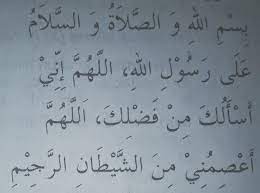 بِسْمِ اللهِ وَ الصَّلَاةُ وَ السَّلَامُ
عَلَى رَسُوْلِ اللهِ، اَللَّهُمَّ إِنِّيْ
أَسْأَلُكَ مِنْ فَضْلِكَ، اَللَّهُمَّ
أَعْصِمْنِيْ مِنَ الشَّيْطَانِ الرَّجِيْمِ